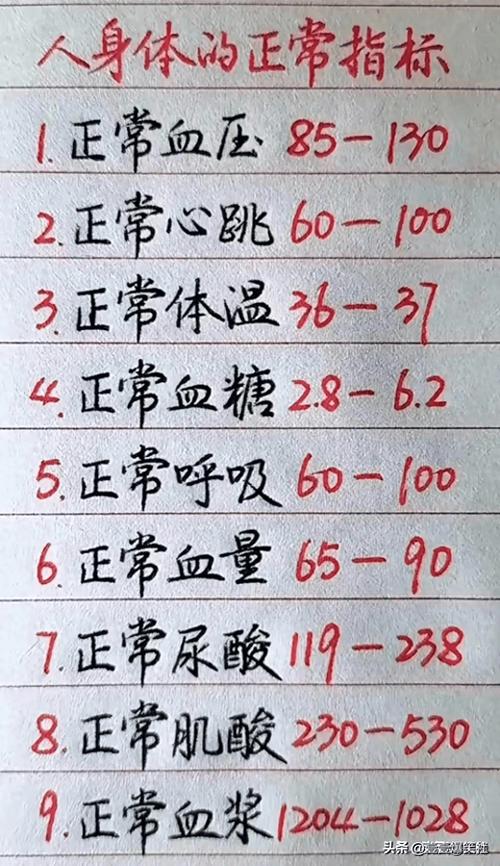 人身体的正常指标
1.正常血压 85-130
2.正常心跳 60-100
3.正常体温 36-37
4.正常血糖 2.8-6.2
5.正常呼吸 60-100
6.正常血量 65-90
7.正常尿酸 119-238
8.正常肌酸 230-530
9.正常血浆 1204-1028
头条